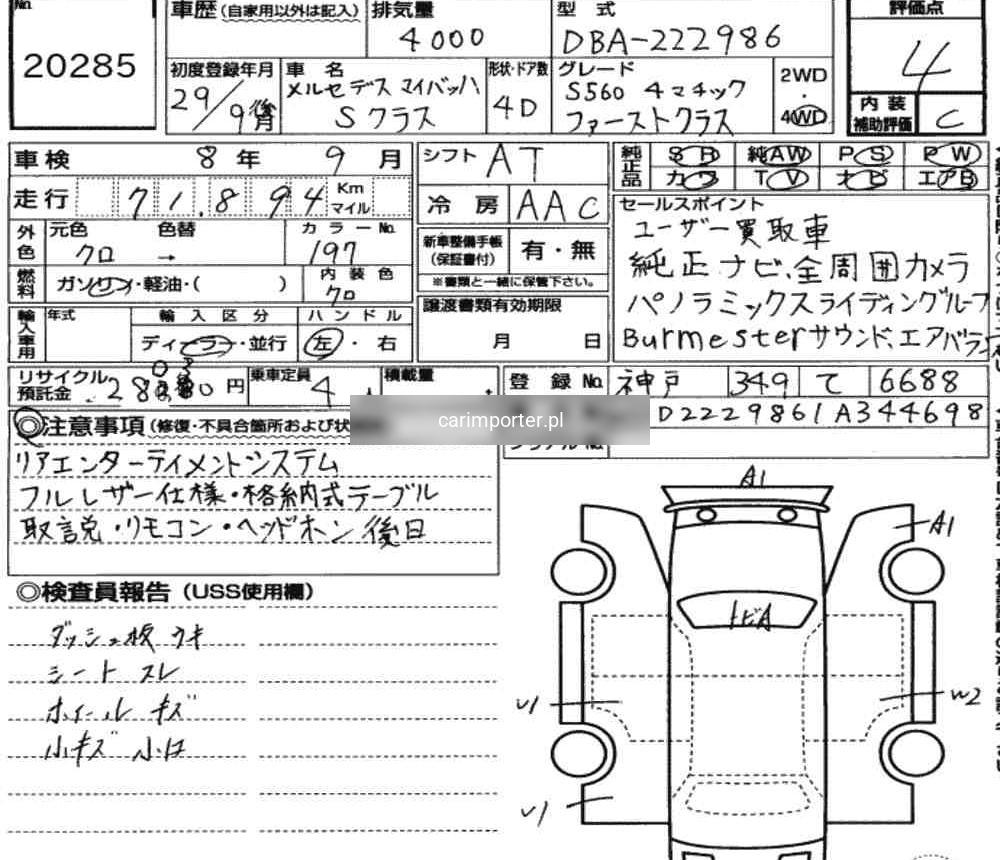 No.
20285
車歴(自家用以外は記入)
排気量
4000
型式
DBA-222986
評価点
4
初度登録年月
29/9後月
車名
メルセデス マイバッハ
Sクラス
形状・ドア数
4D
グレード
S560 4マチック
ファーストクラス
2WD
・
4WD
内装
補助評価
C
車検 8年 9月
シフト AT
純正品
SR 純AW PS PW
カワ TV ナビ エアB
走行 71.894 Km マイル
冷房 AAC
セールスポイント
ユーザー買取車
純正ナビ、全周囲カメラ
パノラミックスライディングルーフ
Burmesterサウンド、エアバランス
外色 元色 色替 カラーNo.
クロ → 197
新車整備手帳
(保証書付)
有・無
※書類と一緒に保管下さい。
燃料 ガソリン・軽油・( )
内装色
クロ
譲渡書類有効期限
月 日
輸入車用 年式 輸入区分 ハンドル
ディーラー・並行 左・右
リサイクル
預託金
円
乗車定員 4人
積載量
登録No. 神戸 349 て 6688
D2229861A344698
carimporter.pl
◎注意事項(修復・不具合箇所および状
リアエンターテイメントシステム
フルレザー仕様・格納式テーブル
取説・リモコン・ヘッドホン後日
◎検査員報告(USS使用欄)
ダッシュ板ウキ
シートスレ
ホイールキズ
小キズ 小凹
A1
A1
トビA
U1
W2
U1